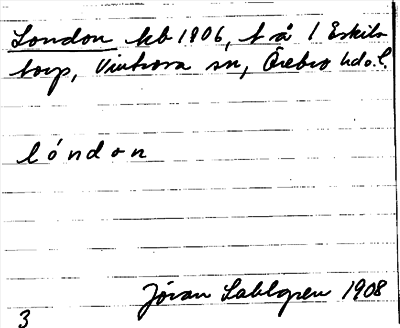 London kb 1806, t å 1 Eskils-
torp, Vintrosa sn, Örebro hd o. l.
lóndon
Jöran Sahlgren 1908
3